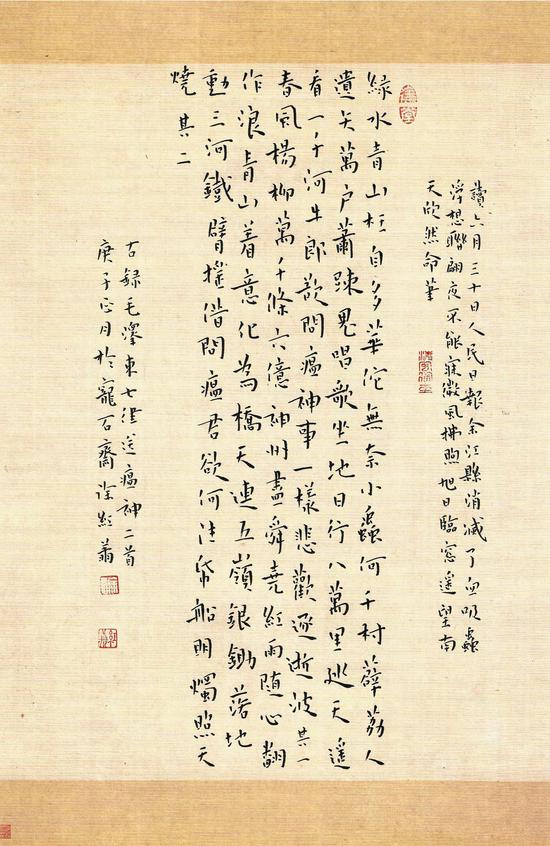 讀六月三十日人民日報余江縣消滅了血吸蟲
浮想聯翩夜不能寐微風拂煦旭日臨窓遙望南
天欣然命筆
綠水青山枉自多華佗無奈小蟲何千村薜荔人
遺矢萬戶蕭踈鬼唱歌坐地日行八萬里巡天遙
看一千河牛郎欲問瘟神事一樣悲歡逐逝波其一
春風楊柳萬千條六億神州盡舜堯紅雨隨心翻
作浪青山着意化為橋天連五嶺銀鋤落地
動三河鐵臂搖借問瘟君欲何往帋船明燭照天
燒其二
右錄毛澤東七律送瘟神二首
庚子正月於寵石齋徐